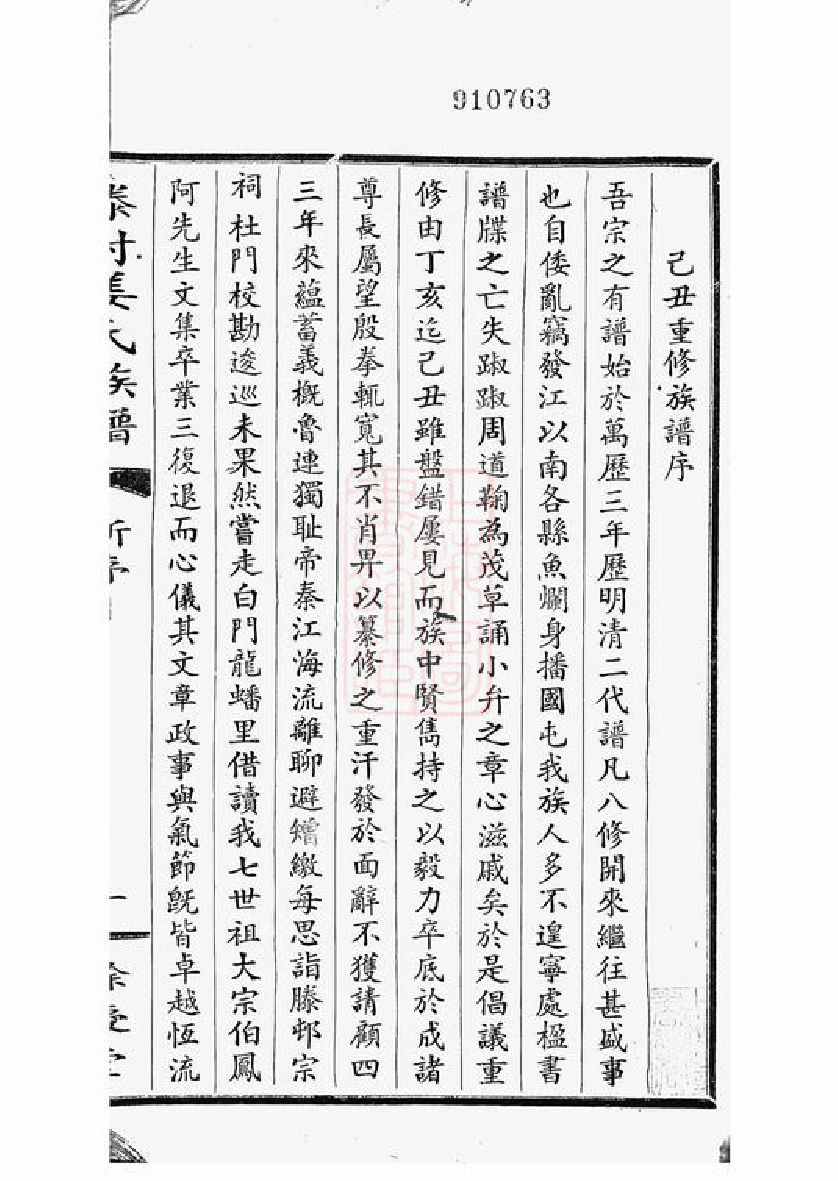 910763
己丑重修族譜序
吾宗之有譜始於萬歷三年歷明清二代譜凡八修開來繼往甚盛事
也自倭亂竊發江以南各縣魚爛身播國屯我族人多不遑寧處楹書
譜牒之亡失踧踧周道鞠為茂草誦小弁之章心滋戚矣於是倡議重
修由丁亥迄己丑雖盤錯屢見而族中賢雋持之以毅力卒底於成諸
尊長屬望殷拳輒寬其不肖畀以纂修之重汗發於面辭不獲請顧四
三年來蘊蓄義概魯連獨耻帝秦江海流離聊避矰繳每思詣滕邨宗
祠杜門校勘逡巡未果然嘗走白門龍蟠里借讀我七世祖大宗伯鳳
阿先生文集卒業三復退而心儀其文章政事與氣節既皆卓越恆流
姜氏族譜
一